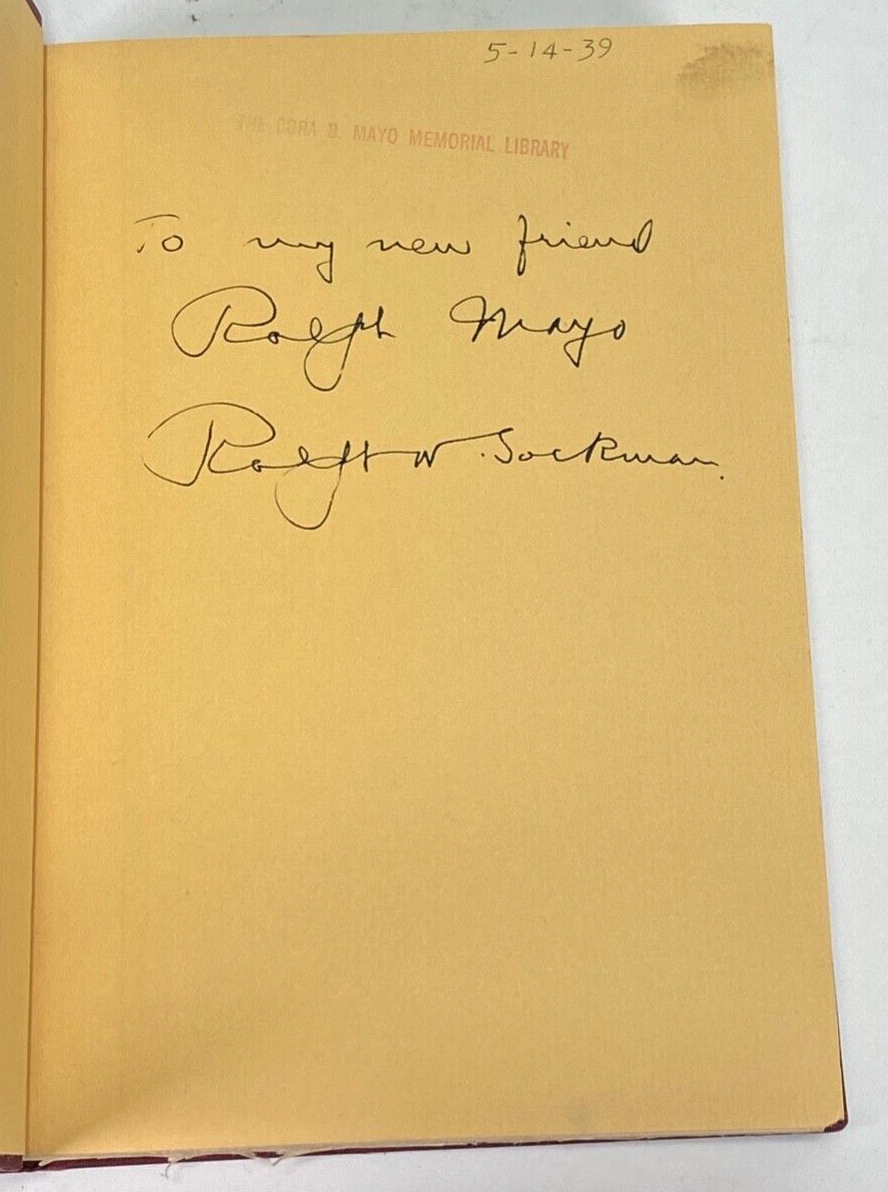 5-14-39
THE CORA B. MAYO MEMORIAL LIBRARY
To my new friend
Ralph Mayo
Ralph W. Sockman.